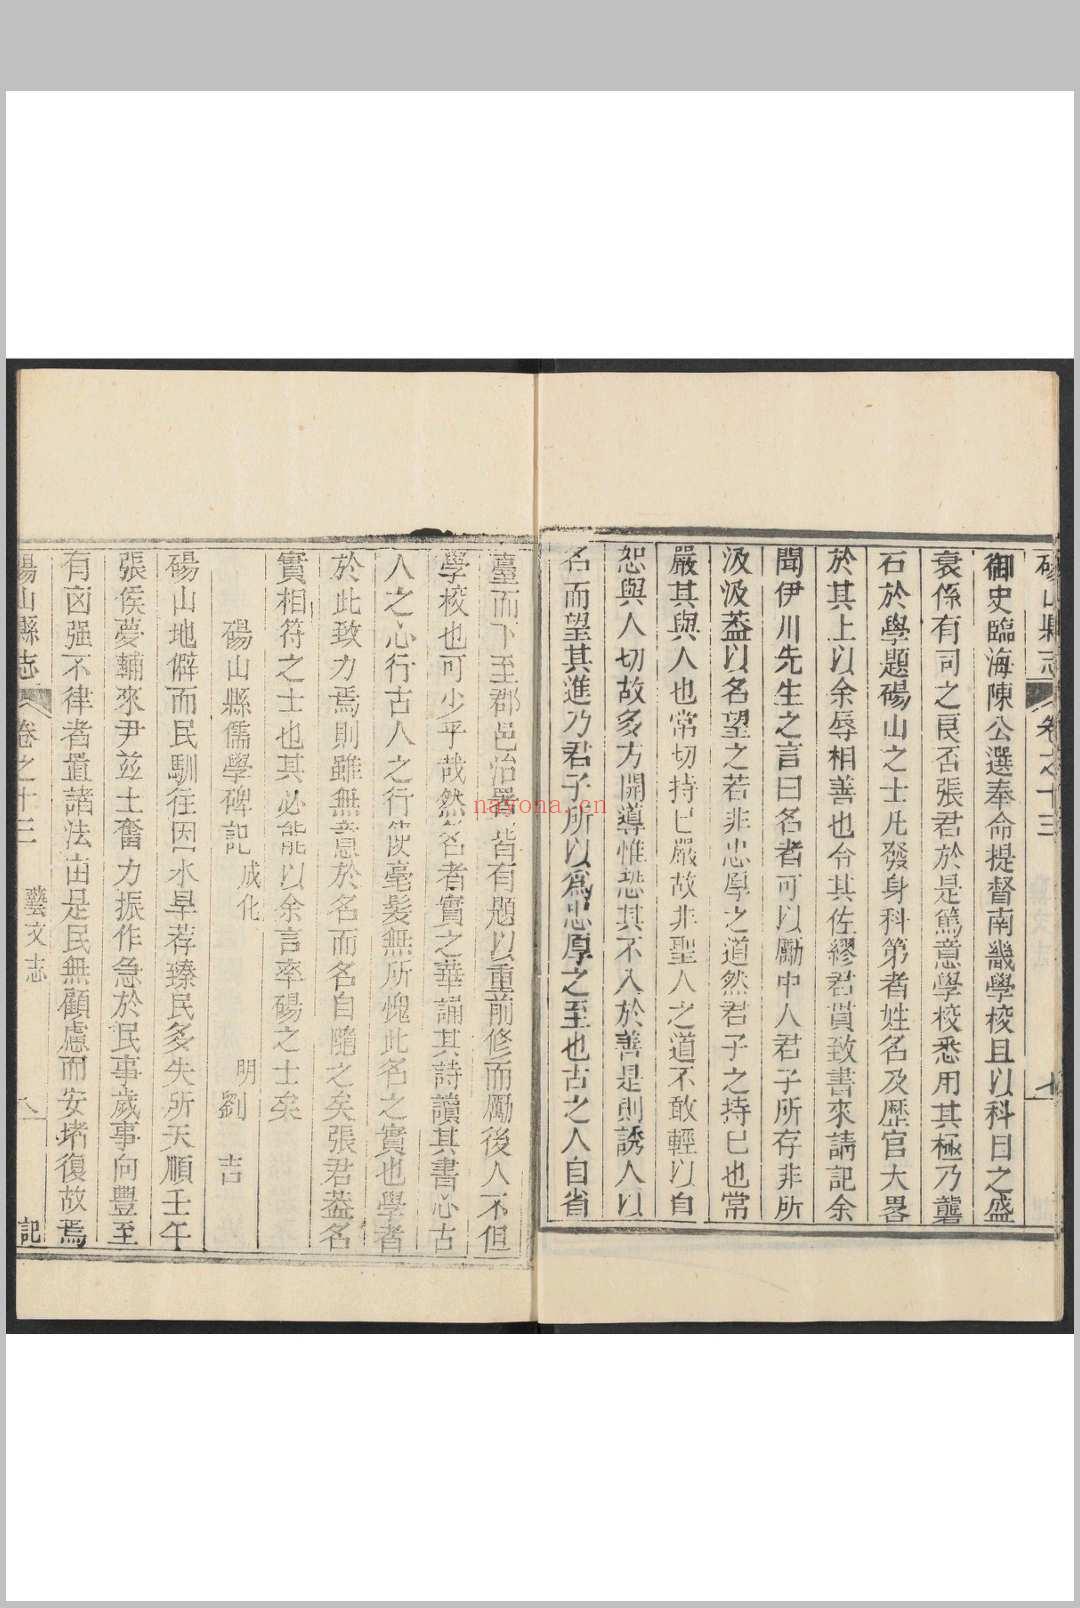 碭山縣志 卷之十三 七
御史臨海陳公選奉命提督南畿學校且以科目之盛
衰係有司之良否張君於是篤意學校悉用其極乃礱
石於學題碭山之士凡發身科第者姓名及歷官大畧
於其上以余辱相善也令其佐繆君賞致書來請記余
聞伊川先生之言曰名者可以勵中人君子所存非所
汲汲葢以名望之若非忠厚之道然君子之持已也常
嚴其與人也常切持已嚴故非聖人之道不敢輕以自
恕與人切故多方開導惟恐其不入於善是則誘人以
名而望其進乃君子所以爲忠厚之至也古之人自省
臺而下至郡邑治署皆有題以重前修而勵後人不但
學校也可少乎哉然名者實之華誦其詩讀其書心古
人之心行古人之行使毫髮無所愧此名之實也學者
於此致力焉則雖無意於名而名自隨之矣張君葢名
實相符之士也其必能以余言率碭之士矣
碭山縣儒學碑記 成化 明劉吉
碭山地僻而民馴往因水旱荐臻民多失所天順壬午
張侯夢輔來尹茲土奮力振作急於民事歲事向豐至
有囟强不律者置諸法由是民無顧慮而安堵復故焉
碭山縣志 卷之十三 藝文志 八 記
navona.cn